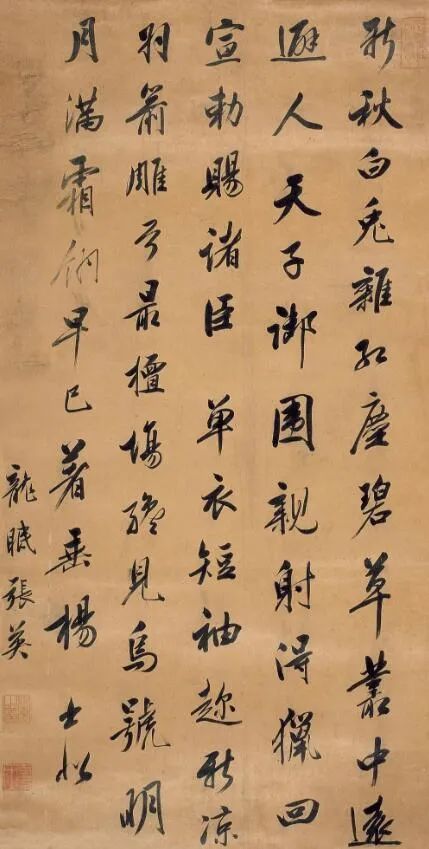 新秋白兔離紅塵碧草叢中遠
避人天子御圍親射得獵回
宣勅賜諸臣 單衣短袖趁新涼
羽箭雕弓最擅場纔見烏號明
月滿霜早已著垂楊
龍眠張英